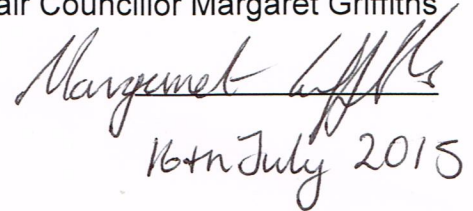 air Councillor Margaret Griffiths
Margaret Griffiths
16th July 2015